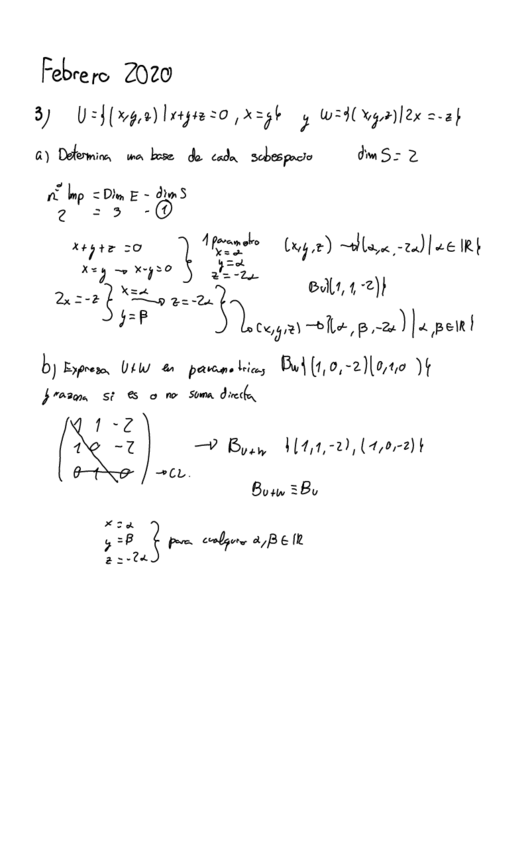 Febrero 2020
3) U={(x,y,z)|x+y+z=0, x=y} y W={(x,y,z)|2x=-z}
a) Determina una base de cada subespacio dim S=2
nº Imp = Dim E - dim S
2 = 3 - 1
x+y+z=0
x=y → x-y=0
1 parametro
x=α
y=α
z=-2α
(x,y,z) → {(α,α,-2α)|α∈ℝ}
Bu{(1,1,-2)}
2x=-z
x=α
y=β
→ z=-2α
(x,y,z) → {(α,β,-2α)|α,β∈ℝ}
b) Expresa U+W en parametricas Bw{(1,0,-2)(0,1,0)}
y razona si es o no suma directa
1 1 -2
1 0 -2
0 1 0 → CL.
→ Bu+w {(1,1,-2),(1,0,-2)}
Bu+w ≡ Bu
x=α
y=β
z=-2α
para cualquier α,β∈ℝ